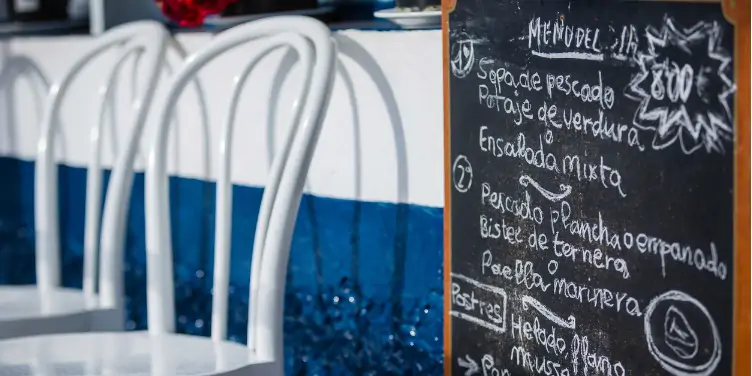 MENU DEL DIA
8'00
1º
Sopa de pescado
Potaje de verdura
o
Ensalada mixta
2º
Pescado plancha o empanado
Bistec de ternera
o
Paella marinera
Postres
Helado, flan o
mousse